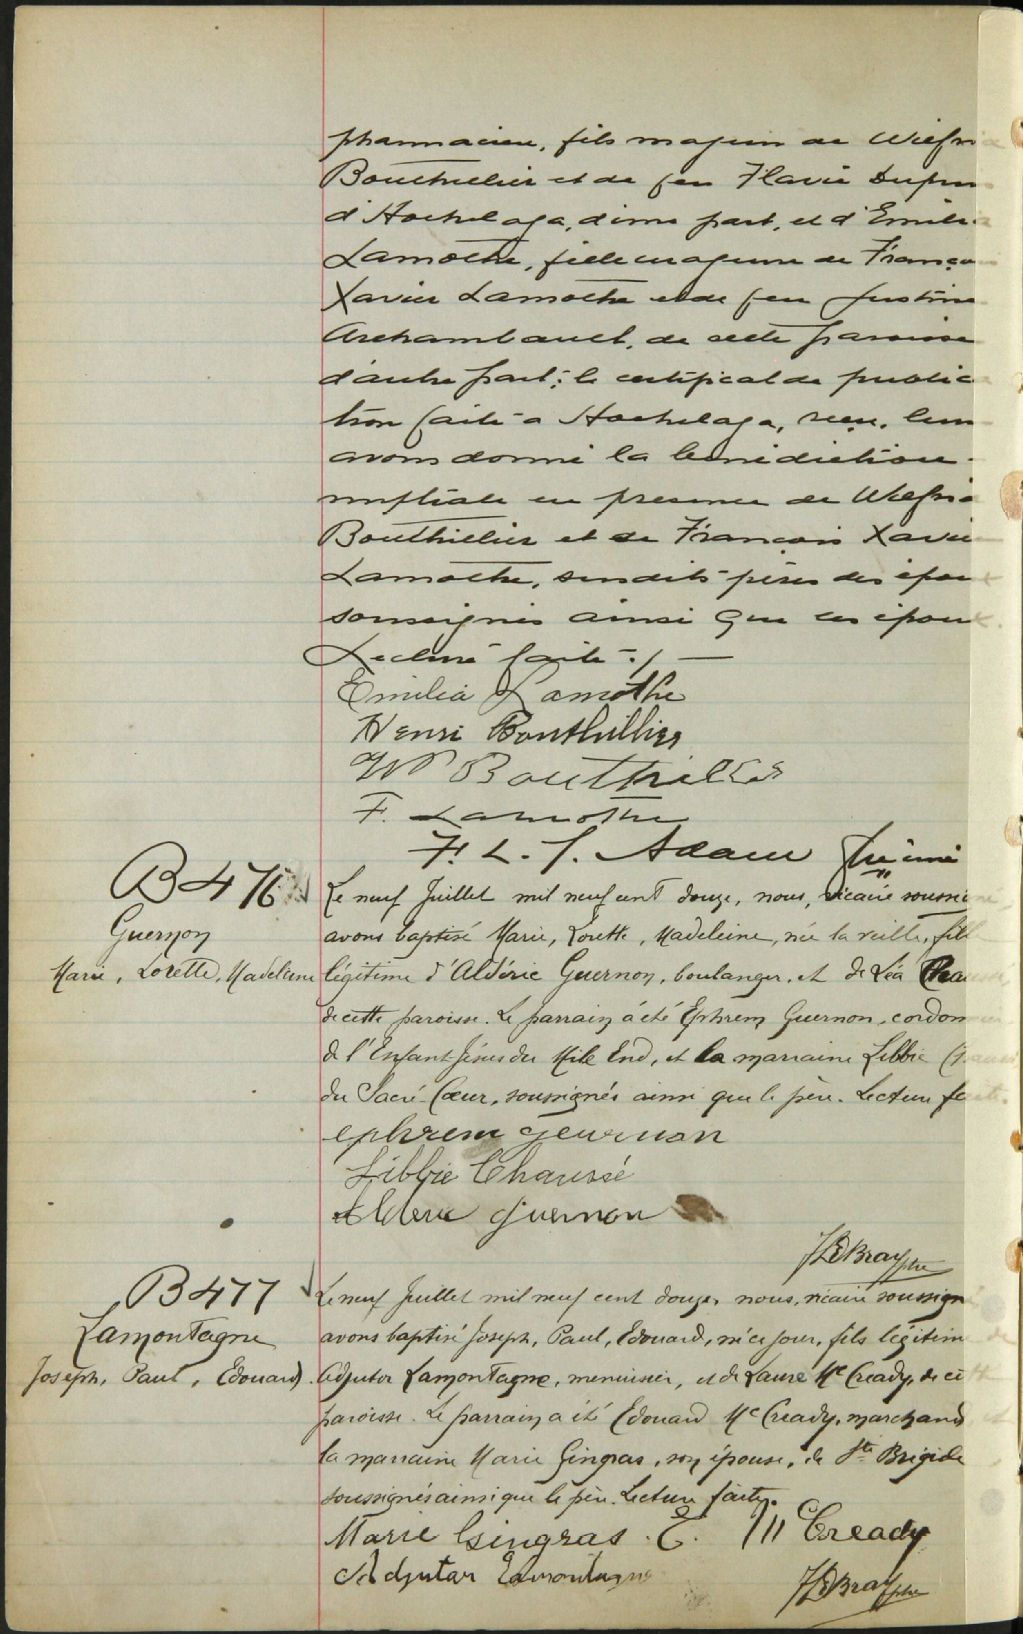 pharmacien, fils majeur de Wilfri
Bouthillier et de feu Flavie Dupu
d'Hochelaga, d'une part, et d'Emilia
Lamothe, fille majeure de Françoi
Xavier Lamothe et de feu Justine
Archambault, de cette paroisse
d'autre part; le certificat de publica
tion faite à Hochelaga, reçu, leur
avons donné la bénédiction
nuptiale en présence de Wilfrid
Bouthillier et de François Xavier
Lamothe, susdits pères des époux
soussignés ainsi que les époux.
Lecture faite ./ —
Emilia Lamothe
Henri Bouthillier
W Bouthillier
F. Lamothe
F. L. J. Adam ptre curé
B 476
Guernon
Marie, Lorette, Madeleine
Le neuf Juillet mil neuf cent douze, nous, vicaire soussigné
avons baptisé Marie, Lorette, Madeleine, née la veille, fill
légitime d'Aldéric Guernon, boulanger, et de Léa Chau
de cette paroisse. Le parrain a été Ephrem Guernon, cordonnier
de l'Enfant Jésus du Mile End, et la marraine Libbie
du Sacré-Cœur, soussignés ainsi que le père. Lecture faite.
ephrem geurnon
Libbie Chaussé
Alderic Guernon
JLDBray ptre
B 477
Lamontagne
Joseph, Paul, Edouard.
Le neuf Juillet mil neuf cent douze, nous, vicaire soussign
avons baptisé Joseph, Paul, Edouard, né ce jour, fils légitime de
Adjutor Lamontagne, menuisier, et de Laure McCready, de cette
paroisse. Le parrain a été Edouard McCready, marchand et
la marraine Marie Gingras, son épouse, de Ste Brigide
soussignés ainsi que le père. Lecture faite.
Marie Gingras. E. Mc Cready
Adjutar Lamontagne
JLDBray ptre